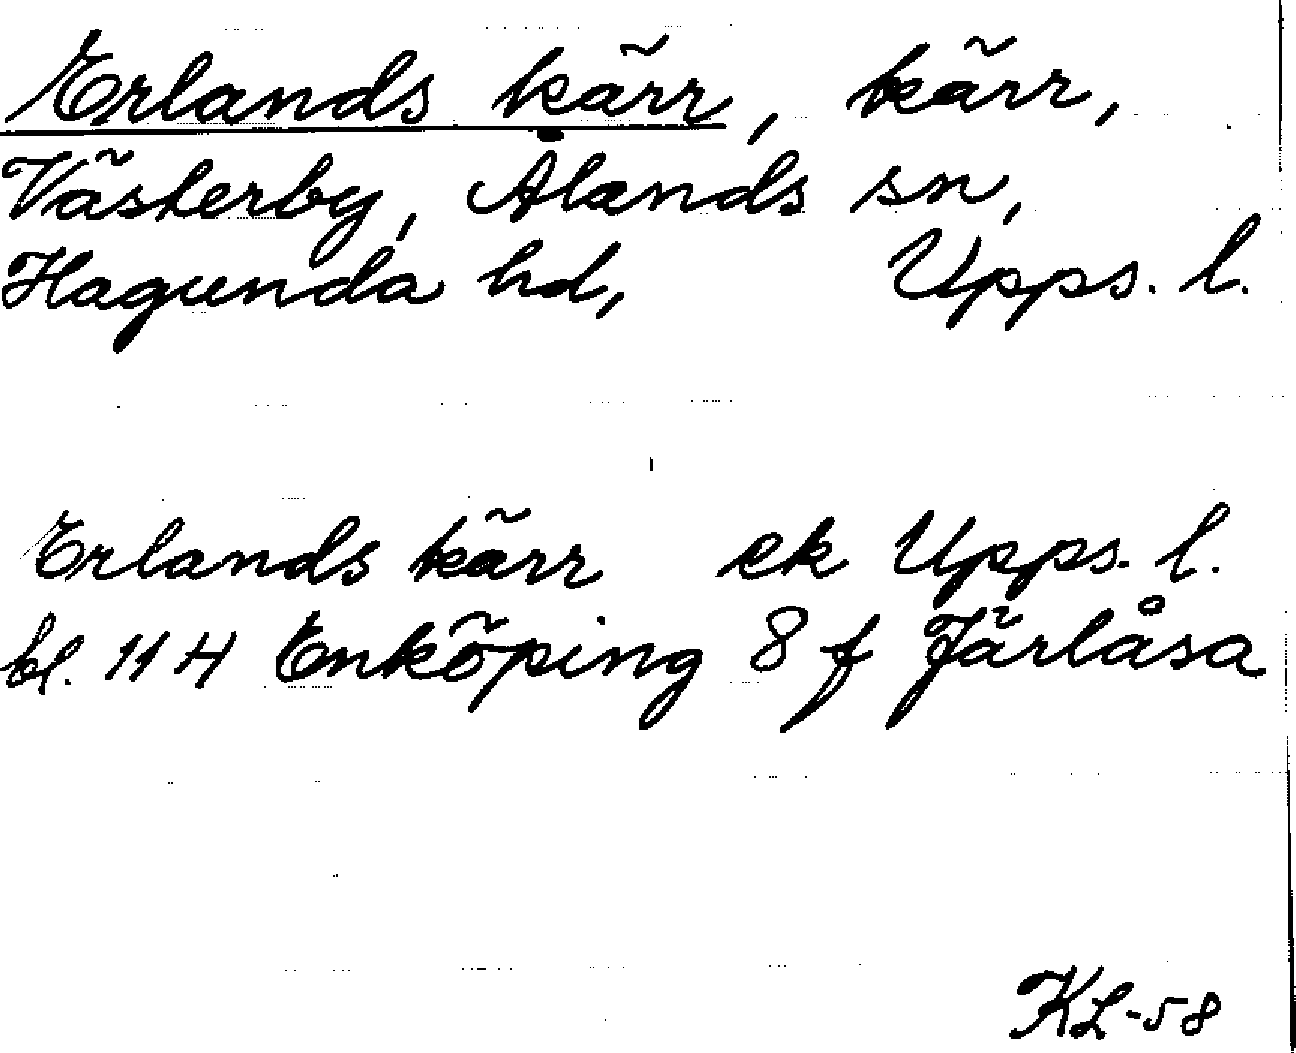 Erlands kärr, kärr,
Västerby, Ålands sn,
Hagunda hd, Upps. l.
Erlands kärr ek Upps. l.
bl. 114 Enköping 8 f Järlåsa
KL-58